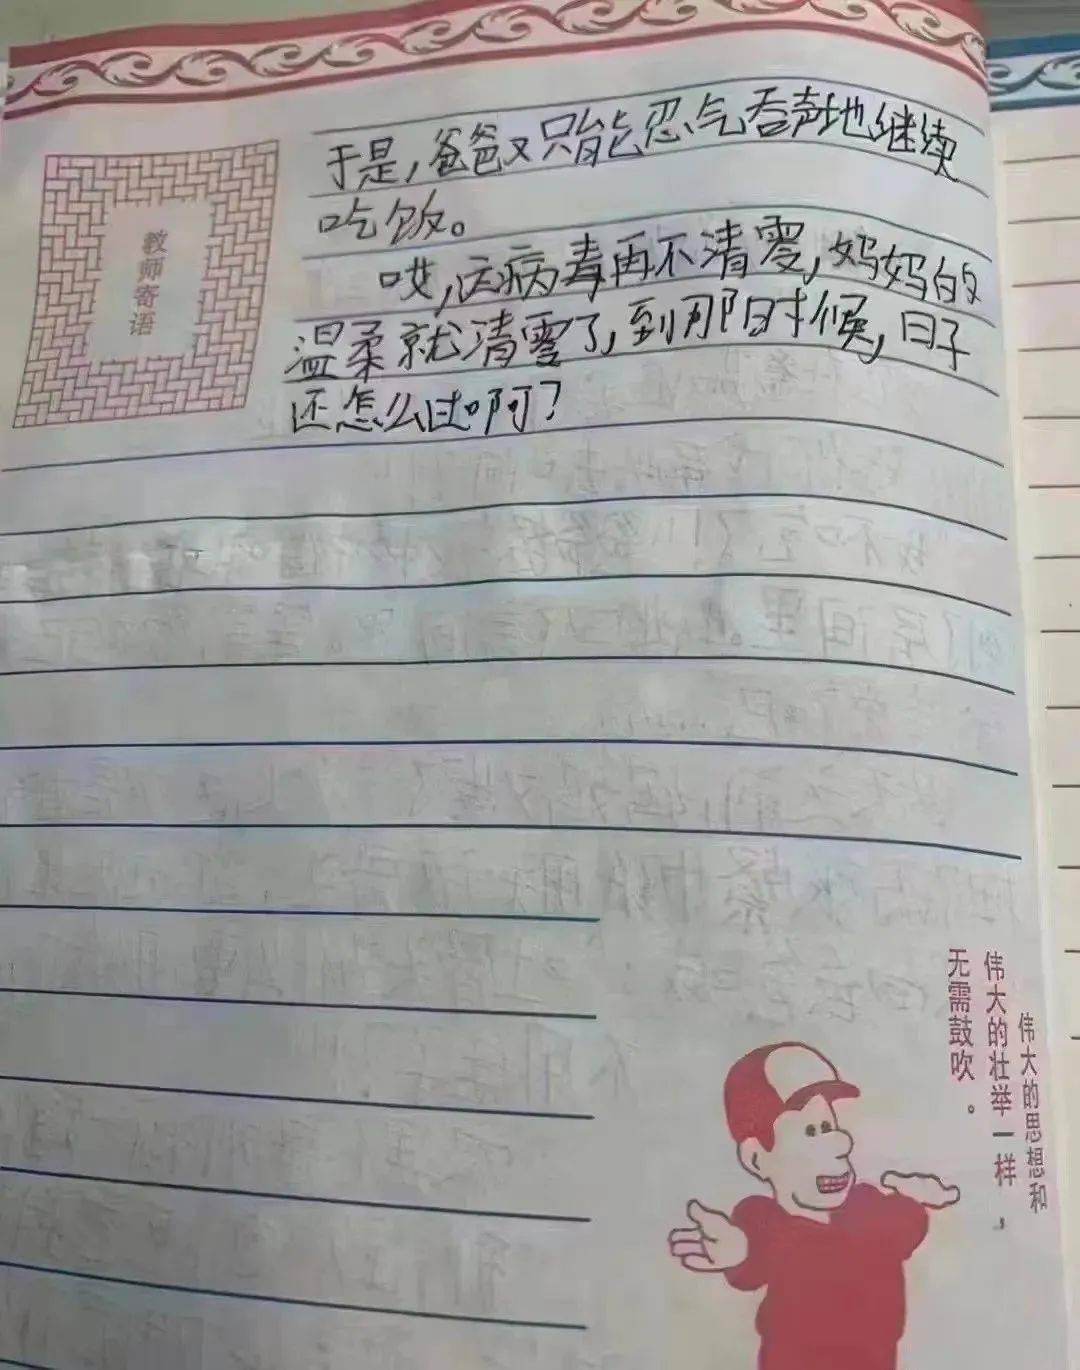 于是,爸爸又只能忍气吞声地继续
吃饭。
哎,这病毒再不清零,妈妈的
温柔就清零了,到那时候,日子
还怎么过啊?
教师寄语
伟大的思想和
伟大的壮举一样,
无需鼓吹。